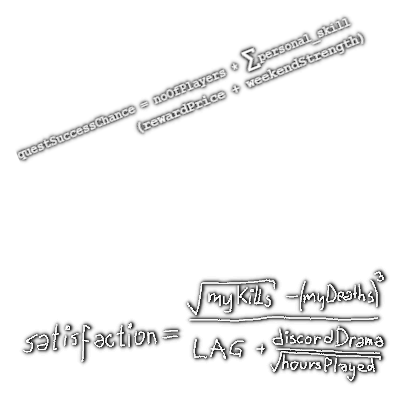 questSuccessChance = noOfPlayers * ∑personal_skill
(rewardPrice + weekendStrength)
satisfaction = √myKills - (myDeaths)³
LAG + discordDrama
√hoursPlayed